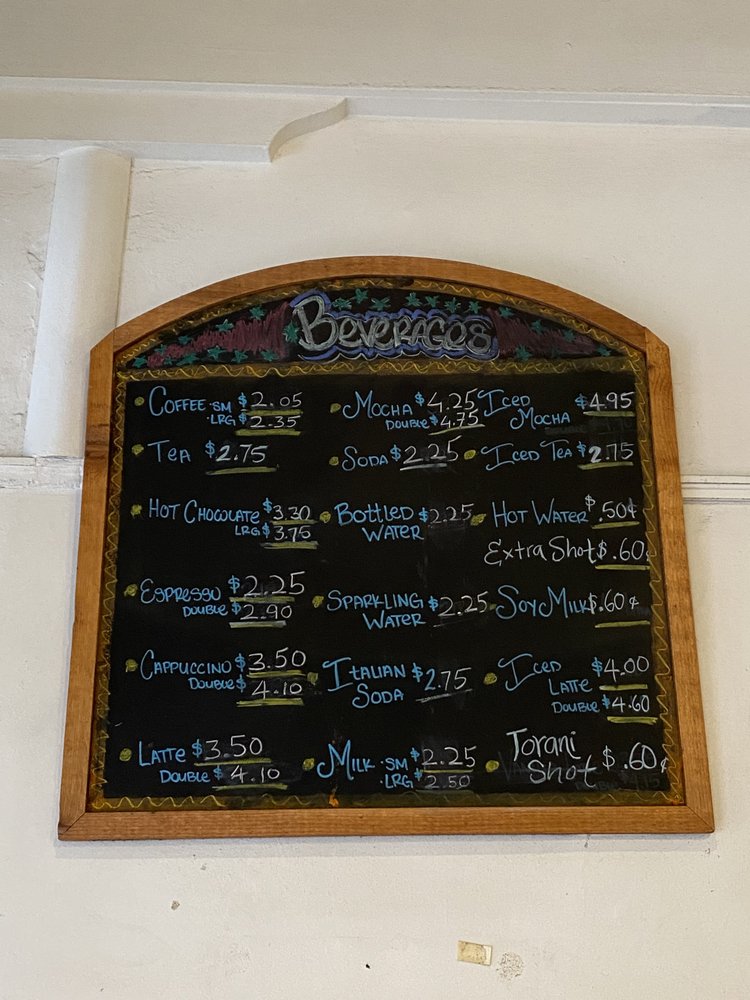 BEVERAGES
COFFEE ·SM $2.05
·LRG $2.35
TEA $2.75
HOT CHOCOLATE $3.30
LRG $3.75
ESPRESSO $2.25
DOUBLE $2.90
CAPPUCCINO $3.50
DOUBLE $4.10
LATTE $3.50
DOUBLE $4.10
MOCHA $4.25
DOUBLE $4.75
SODA $2.25
BOTTLED $2.25
WATER
SPARKLING $2.25
WATER
ITALIAN $2.75
SODA
MILK ·SM $2.25
·LRG $2.50
ICED $4.95
MOCHA
ICED TEA $2.75
HOT WATER $.50¢
Extra Shot $.60
SOY MILK $.60¢
ICED $4.00
LATTE
DOUBLE $4.60
Torani $.60¢
Shot